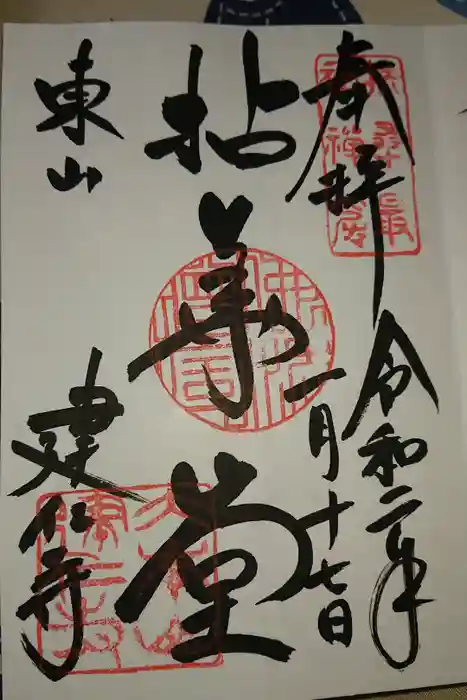 奉拝
令和二年
一月十七日
拈華堂
東山
建仁寺